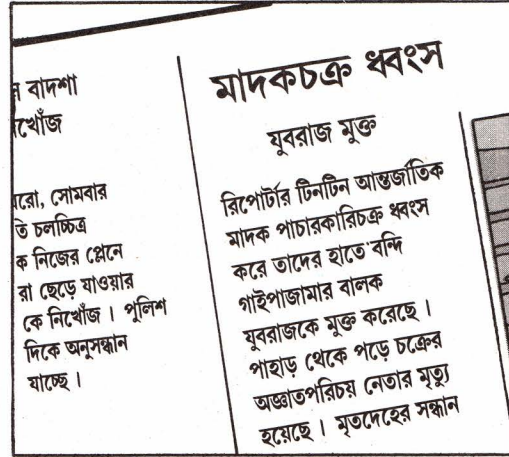 বাদশা
নিখোঁজ
সোমবার
চলচ্চিত্র
ক নিজের প্লেনে
রা ছেড়ে যাওয়ার
কে নিখোঁজ। পুলিশ
দিকে অনুসন্ধান
যাচ্ছে।
মাদকচক্র ধ্বংস
যুবরাজ মুক্ত
রিপোর্টার টিনটিন আন্তর্জাতিক
মাদক পাচারকারিচক্র ধ্বংস
করে তাদের হাতে বন্দি
গাইপাজামার বালক
যুবরাজকে মুক্ত করেছে।
পাহাড় থেকে পড়ে চক্রের
অজ্ঞাতপরিচয় নেতার মৃত্যু
হয়েছে। মৃতদেহের সন্ধান